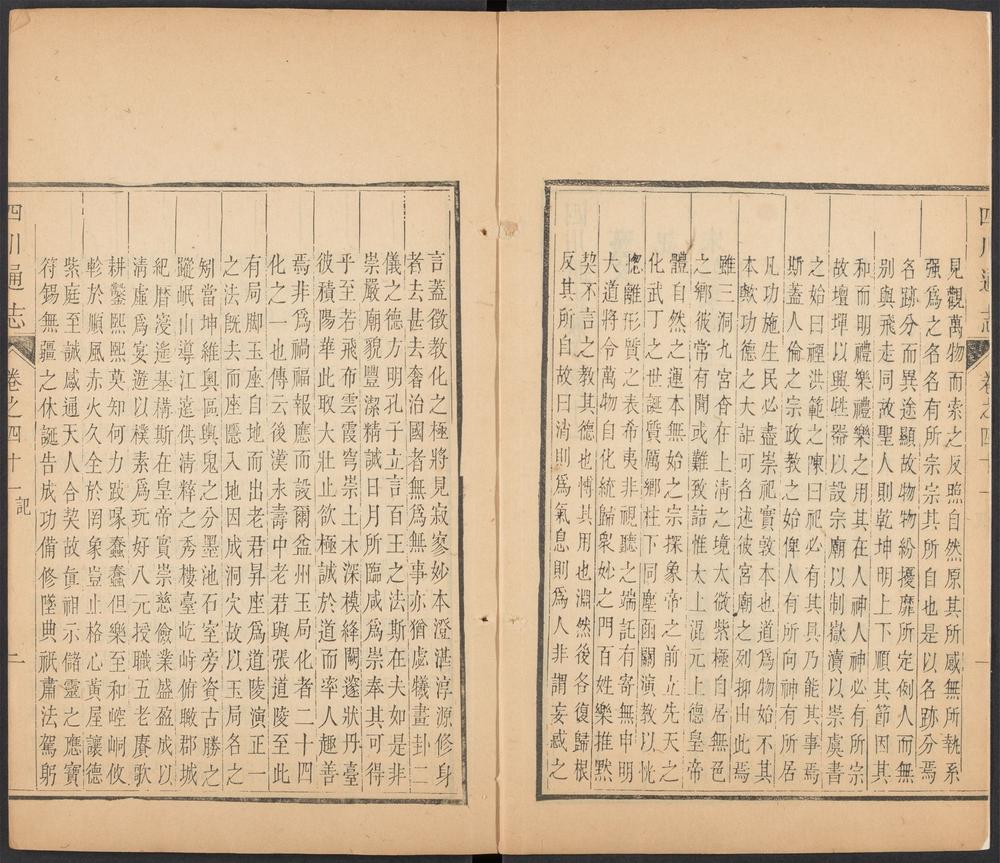 見觀萬物而索之反照自然原其所感無所執系
强爲之名名有所宗宗其所自也是以名跡分焉
名跡分而異途顯故物物紛擾靡所定例人而無
別與飛走同故聖人則乾坤明上下順其節因其
和而明禮樂禮樂之用其在人神人神必有所宗
故壇墠以興牲器以設宗廟以制嶽瀆以崇虞書
之始曰禋洪範之陳曰祀必有其具乃能其事焉
斯蓋人倫之宗政教之始俾人有所向神有所居
凡功施生民必盡崇祀實敦本也道爲物始不其
本歟功德之大詎可各述彼宮廟之列抑由此焉
雖三洞九宮杳在上清之境太微紫極自居無色
之鄉彼常有聞或難致詰惟太上混元上德皇帝
體自然之運本無始之宗探象帝之前立先天之
化武丁之世誕質厲鄉柱下同塵函關演教以恍
惚離形質之表希夷非視聽之端託有寄無申明
大道將令萬物自化統歸衆妙之門百姓樂推默
契不言之教其德也博其用也淵然後各復歸根
反其所自故曰清則爲氣息則爲人非謂妄惑之
四川通志
卷之四十一
言蓋徵教化之極將見寂寥妙本澄湛淳源修身
者去甚去奢治國者無爲無事亦猶虙犧畫卦二
儀之德方明孔子立言百王之法斯在夫如是非
崇嚴廟貌豐潔精誠日月所臨咸爲崇奉其可得
乎至若飛布雲霞穹崇土木深模絳闕邃狀丹臺
彼積陽華此取大壯止欲極誠於道而率人趣善
焉非爲禍福報應而設爾益州玉局化者二十四
化之一也傳云後漢永壽中老君與張道陵至此
有局脚玉座自地而出老君昇座爲道陵演正一
之法旣去而座隱入地因成洞穴故以玉局名之
矧當坤維輿區輿鬼之分墨池石室旁資古勝之
蹤岷山導江遠供清粹之秀樓臺屹峙俯瞰郡城
紀曆寖遙基構斯在皇帝實崇慈儉業盛盈成以
清虛爲宴遊以樸素爲玩好八元授職五老賡歌
耕鑿熙熙莫知何力跂喙蠢蠢但樂至和崆峒攸
軫於順風赤火久全於罔象豈止格心黃屋讓德
紫庭至誠感通天人合契故眞祖示儲靈之應寶
符錫無疆之休誕告成功備修墜典祇肅法駕躬
四川通志
卷之四十一
記
二